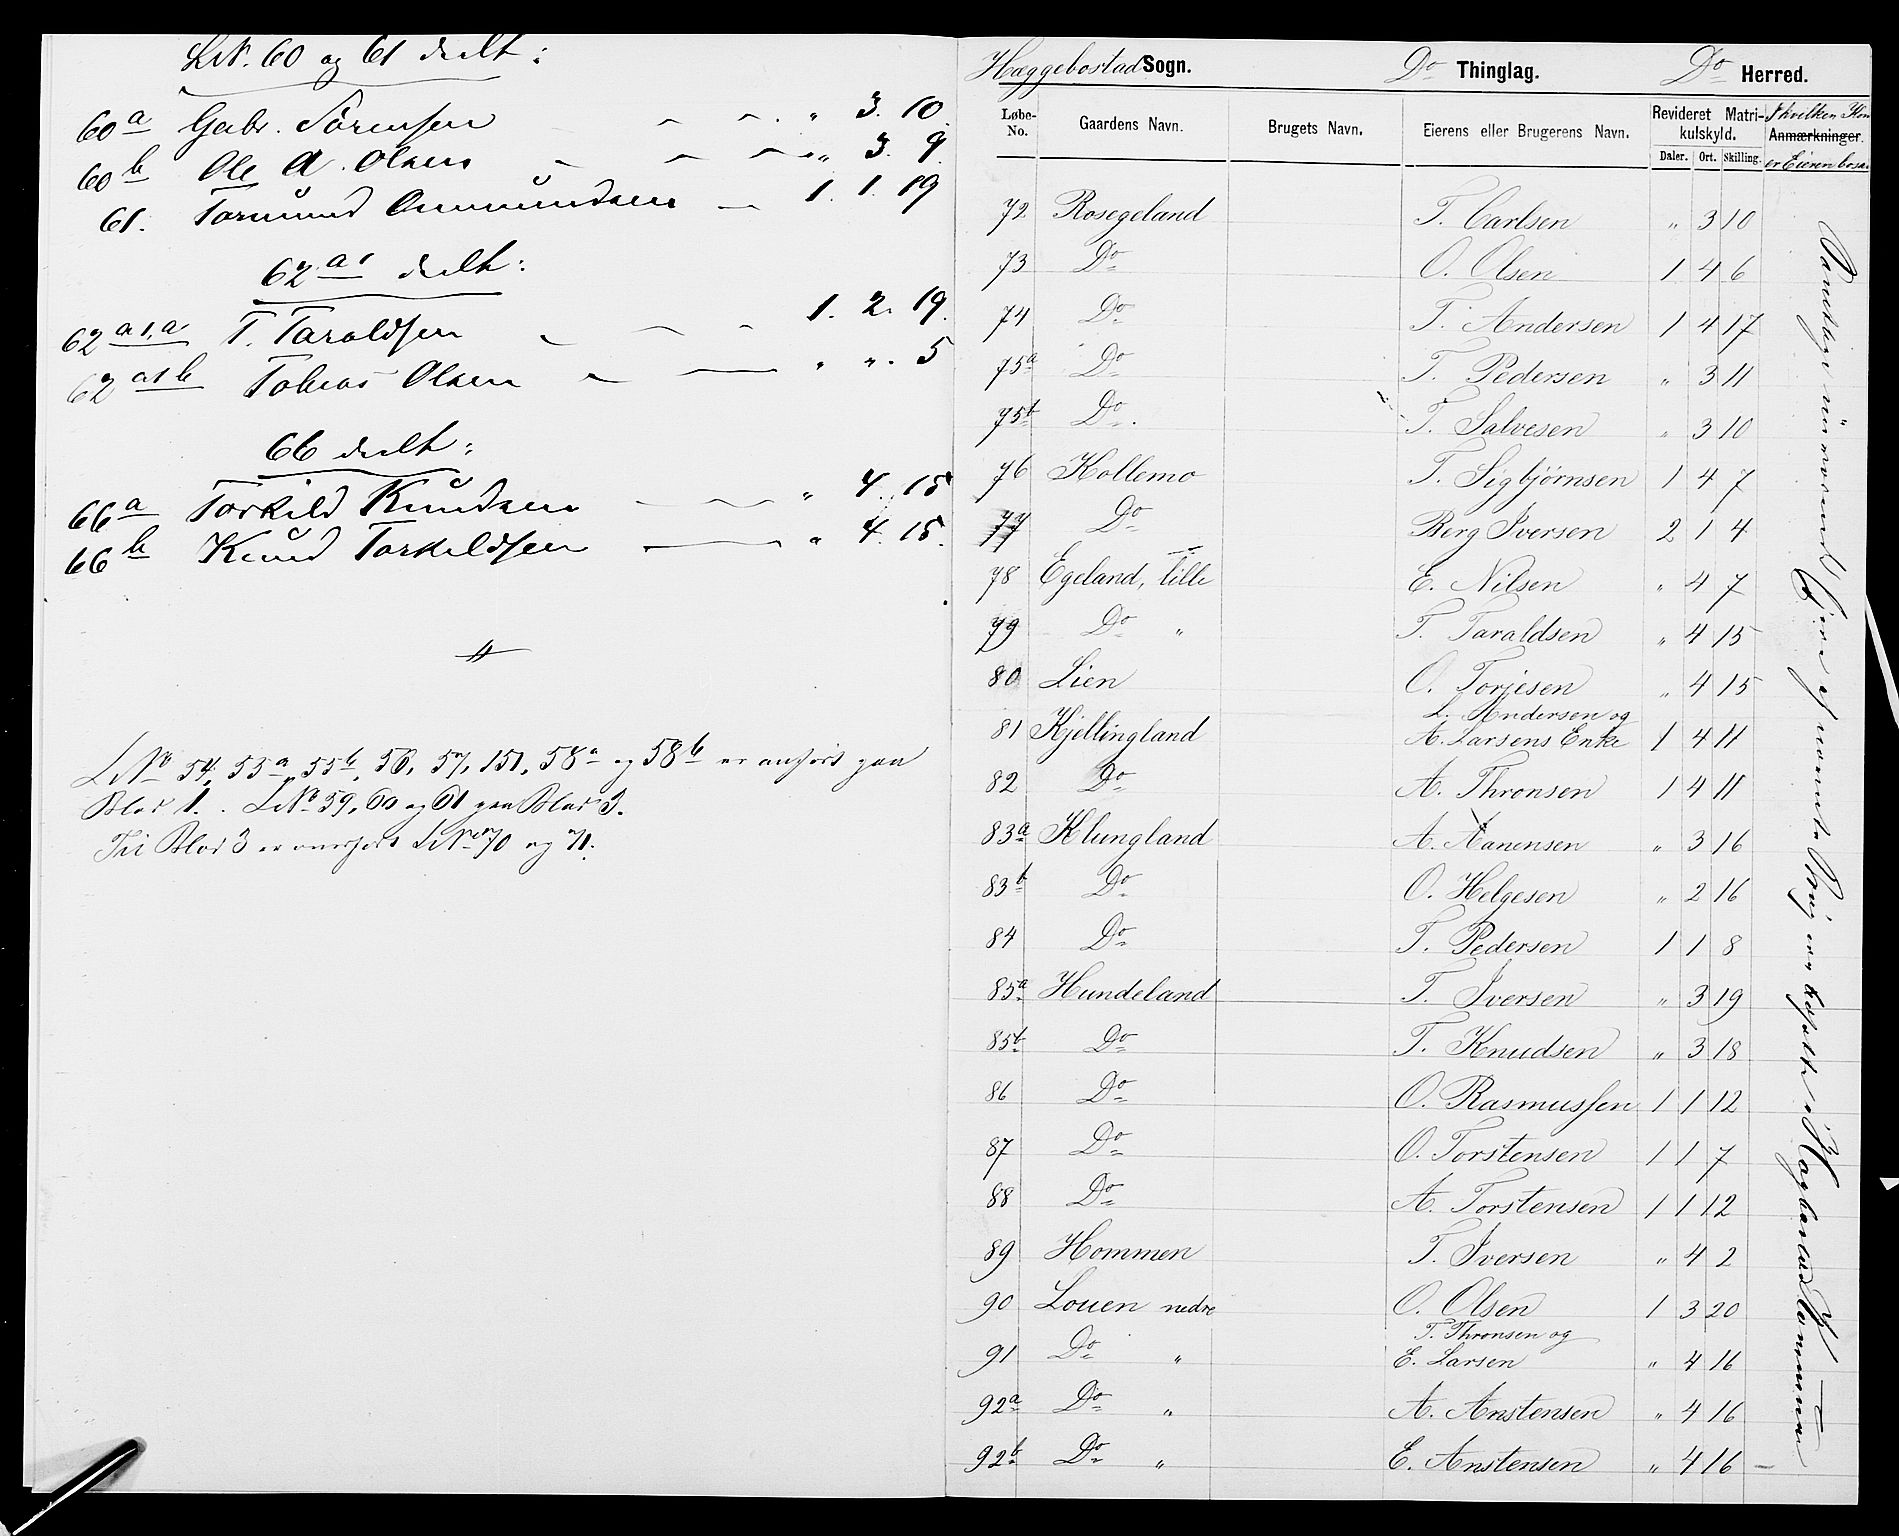 LN. 60 og 61 delt:
60a Gabr. Sørensen " 3. 10.
60b Ole A. Olsen " 3. 9.
61. Tormund Ommundsen 1. 1. 19
62a1 delt:
62a1,a T. Taraldsen 1. 2. 19.
62a1b Tobias Olsen " ". 5
66 delt:
66a Torkild Knudsen " 4. 15
66b Knud Torkildsen " 4. 15.
LNo 54, 55a, 55b, 56, 57, 151, 58a og 58b er anført paa
Blad 1. LNo 59, 60 og 61 paa Blad 3.
Til Blad 3 er overført LNo 70 og 71.
Hæggebostad Sogn. Do Thinglag. Do Herred.
Løbe-No. Gaardens Navn. Brugets Navn. Eierens eller Brugerens Navn. Revideret Matrikulskyld. Daler. Ort. Skilling. Anmærkninger.
I hvilken Kom
er Eieren bosa
72 Rosegeland T. Carlsen " 3 10
73 Do O. Olsen 1 4 6
74 Do T. Andersen 1 4 17
75a Do T. Pedersen " 3 11
75b Do. T. Salvesen " 3 10
76 Kollemo T. Sigbjørnsen 1 4 7
77 Do Berg Iversen 2 1 4
78 Egeland, lille E. Nilsen " 4 7
79 Do " T. Taraldsen " 4 15
80 Lien O. Torjesen " 4 15
81 Kjellingland L. Andersen og
A. Larsens Enke 1 4 11
82 Do A. Thronsen 1 4 11
83a Klungland A. Aanensen " 3 16
83b Do O. Helgesen " 2 16
84 Do T. Pedersen 1 1 8
85a Hundeland T. Iversen " 3 19
85b Do T. Knudsen " 3 18
86 Do O. Rasmussen 1 1 12
87 Do O. Torstensen 1 1 7
88 Do A. Torstensen 1 1 12
89 Hommen T. Iversen " 4 2
90 Louen nedre O. Olsen 1 3 20
91 Do " T. Thronsen og
E. Larsen " 4 16
92a Do " A. Anstensen " 4 16
92b Do " E. Anstensen " 4 16
nuværende Eiere af nævnte Brug er bosatte i